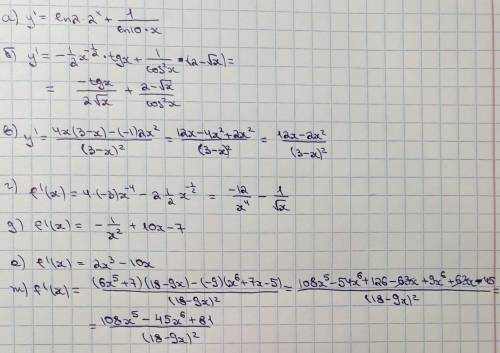 а) y' = ln2·2ˣ + 1/(ln10·x)
б) y' = -1/2 x^(-1/2)·tgx + 1/cos²x·(2-√x) =
= -tgx/(2√x) + (2-√x)/cos²x
в) y' = (4x(3-x)-(-1)2x²)/(3-x)² = (12x-4x²+2x²)/(3-x)² = (12x-2x²)/(3-x)²
г) f'(x) = 4·(-3)x⁻⁴ - 2 1/2 x^(-1/2) = -12/x⁴ - 1/√x
д) f'(x) = -1/x² + 10x-7
е) f'(x) = 2x³ - 10x
m) f'(x) = ((6x⁵+7)(18-9x)-(-9)(x⁶+7x-5))/(18-9x)² = (108x⁵-54x⁶+126-63x+9x⁶+63x-45)/(18-9x)² =
= (108x⁵-45x⁶+81)/(18-9x)²